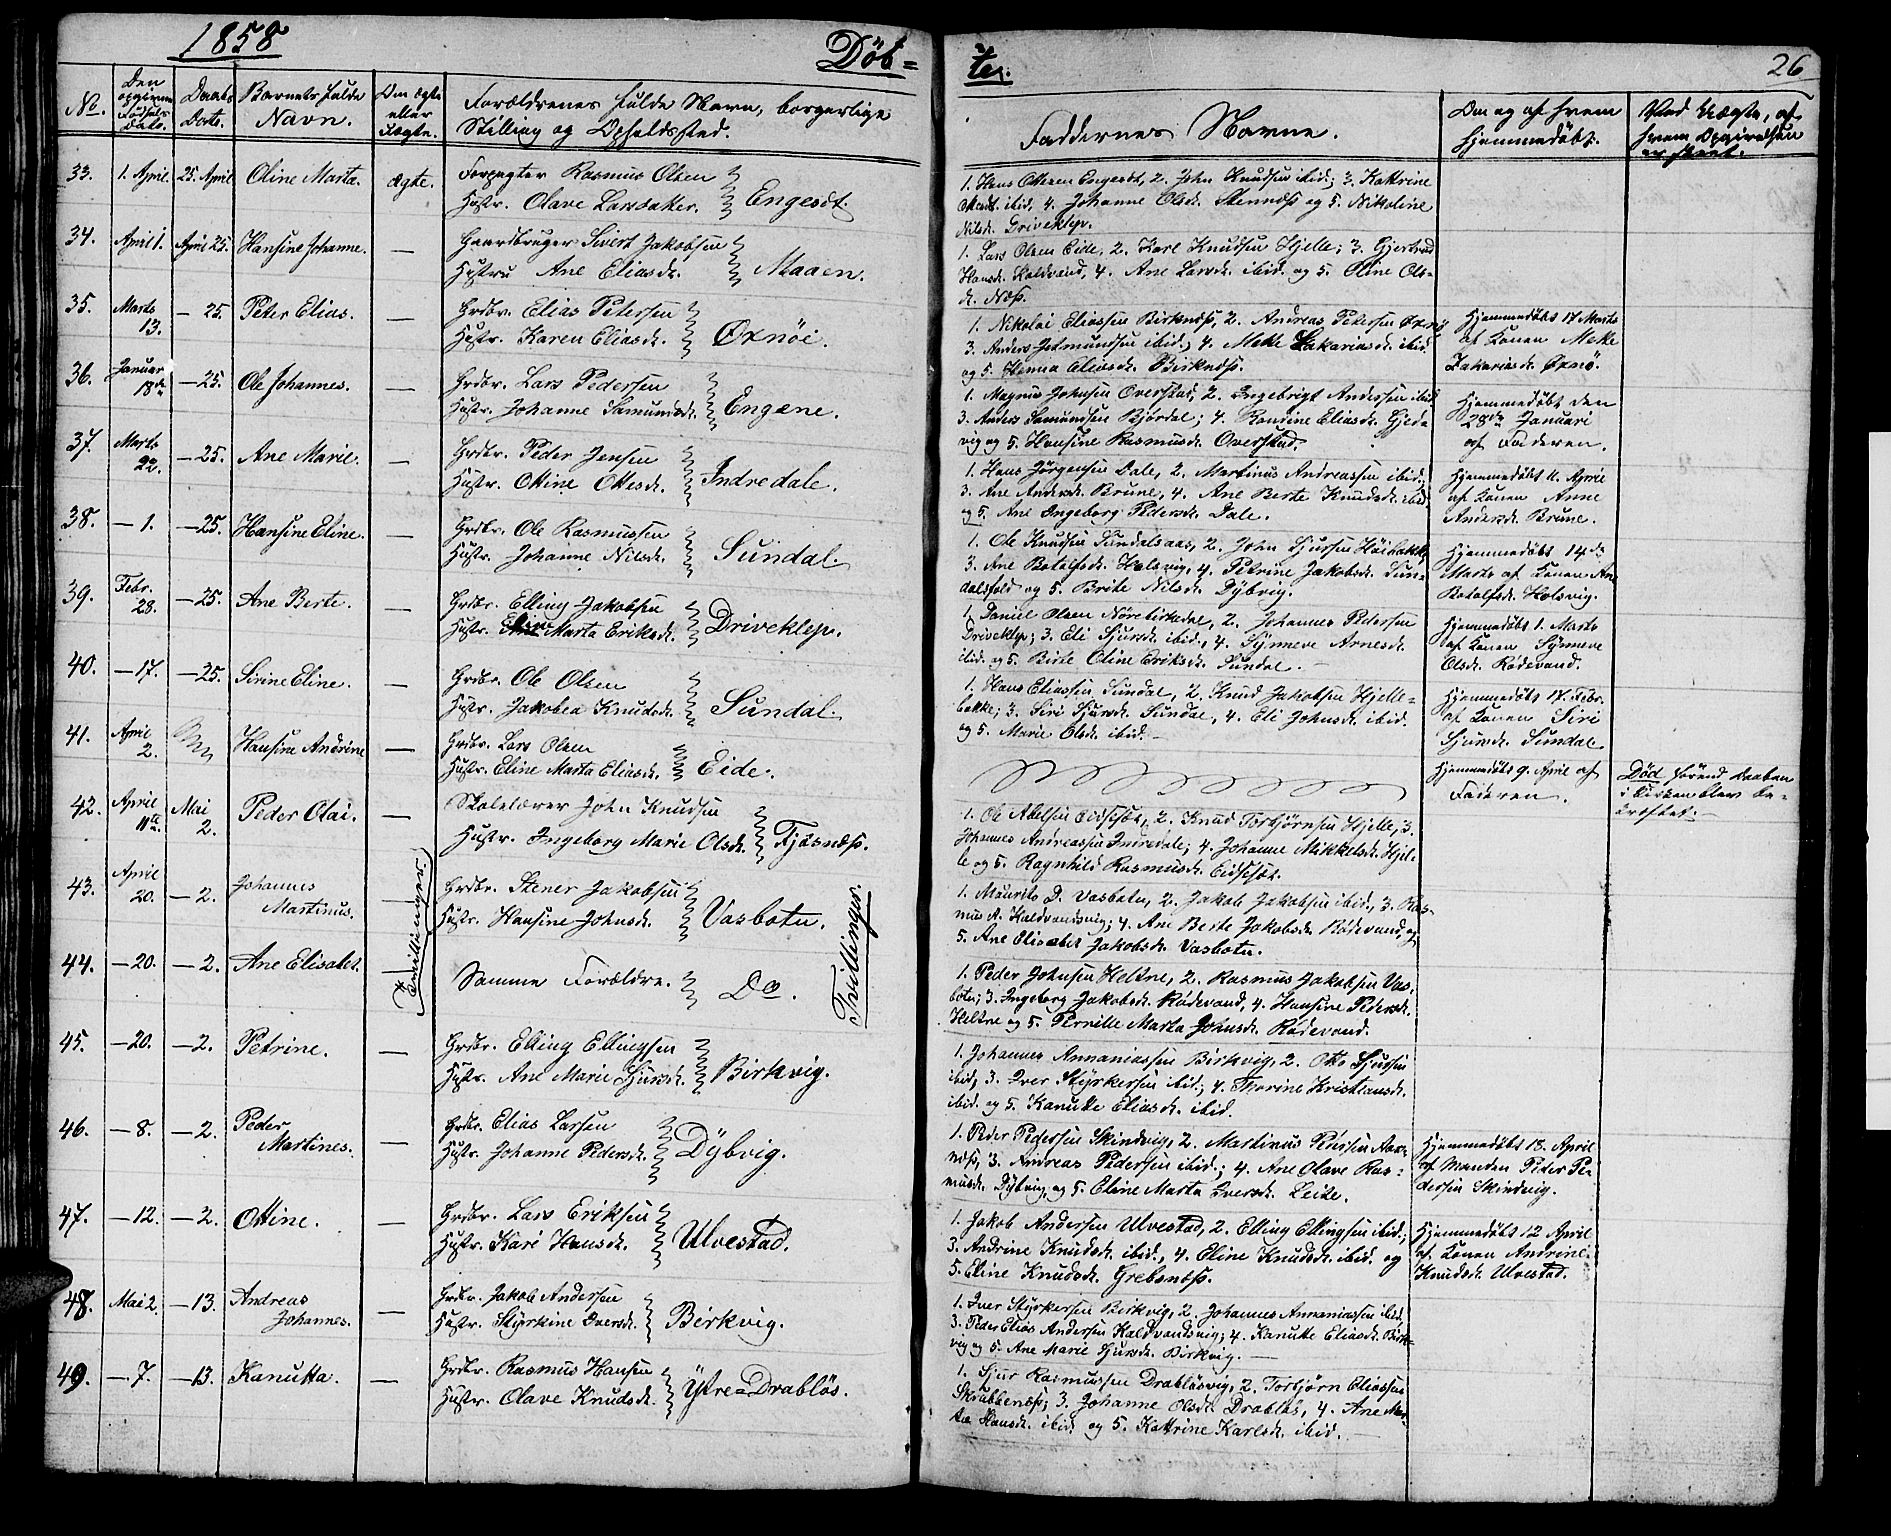 1858
Döb=
te.
26
No.
Den opgivne Födsels Dato.
Daabs Dato.
Barnets fulde Navn.
Om ægte eller Uægte.
Forældrenes fulde Navn, borgerlige Stilling og Opholdssted.
Faddernes Navne.
Om og af hvem hjemmedöbt.
Ved Uægte, af hvem Opgivelsen er skeet.
33. 1. April. 25. April Oline Marta. ægte. Forpagter Rasmus Olsen
Hustr. Olave Larsdatter. Engesdt.
1. Hans Ottesen Engesdt, 2. John Knudsen ibid; 3. Kattrine
ibid, 4. Johanne Olsdr. Stennæss og 5. Nikoline
Nilsdr. Driveklep.
34. April 1. April 25. Hansine Johanne. — Gaardbruger Sivert Jakobsen
Hustru Ane Eliasdr. Maaen.
1. Lars Olsen Eide, 2. Karl Knudsen Hjelle; 3. Gjertrud
Hansdr. Kaldvand, 4. Ane Larsdr. ibid. og 5. Oline Ols-
dr. Næss.
35. Marts 13. — 25. Peter Elias. — Grdbr. Elias Petersen
Hustr. Karen Eliasdr. Öxnöi.
1. Nikolai Eliassen Birknæss, 2. Andreas Petersen Öxnö
3. Anders Jetmundsen ibid; 4. Mette Zakariasdr. ibid.
og 5. Hanna Eliasdr. Birknæss.
Hjemmedöbt 17 Marts
af Konen Mette
Zakariasdr. Öxnö.
36. Januar 18de — 25. Ole Johannes. — Grdbr. Lars Pedersen
Hustr. Johanne Samundsdr. Engene.
1. Magnus Johnsen Overstad, 2. Ingebrigt Andersen ibid
3. Anders Samundsen Björdal; 4. Randine Eliasdr. Gjeda
vig og 5. Hansine Rasmusdr. Overstad.
Hjemmedöbt den
28de Januari
af Faderen.
37. Marts 22. — 25. Ane Marie. — Grdbr. Peder Jensen
Hustr. Ottine Ottesdr. Indredale.
1. Hans Jörgensen Dale, 2. Martinus Andreassen ibid.
3. Ane Andersdr. Brune, 4. Ane Berte Knudsdr. ibid
og 5. Ane Ingeborg Pedersdr. Dale.
Hjemmedöbt 11. April
af Konen Anne
Andersdr. Brune.
38. — 1. — 25. Hansine Eline. — Grdbr. Ole Rasmussen
Hustr. Johanne Nilsdr. Sundal.
1. Ole Knudsen Sundalsaas, 2. John Sjursen Höibakk,
3. Ane Botolfsdr. Holsvig, 4. Petrine Jakobsdr. Sun-
dalsfold og 5. Brite Nilsdr. Dybvig.
Hjemmedöbt 14de
Marts af Konen An
Botolfsdr. Holsvig.
39. Febr. 28. — 25. Ane Berte. — Grdbr. Elling Jakobsen
Hustr. Eline Marta Eriksdr. Driveklep.
1. Daniel Olsen Nörebirkedal, 2. Johannes Pedersen
Driveklep; 3. Eli Sjursdr. ibid., 4. Synneve Arnesdr.
ibid. og 5. Birte Oline Eriksdr. Sundal.
Hjemmedöbt 1. Marts
af Konen Synneve
Olsdr. Rödevand.
40. — 17. — 25. Sirine Eline. — Grdbr. Ole Olsen
Hustr. Jakobea Knudsdr. Sundal.
1. Hans Eliassen Sundal, 2. Knud Jakobsen Hjelle-
bakke; 3. Siri Sjursdr. Sundal, 4. Eli Johnsdr. ibid.
og 5. Marie Olsdr. ibid.
Hjemmedöbt 17. Febr.
af Konen Siri
Sjursdr. Sundal
41. April 2. Hansine Andrine — Grdbr. Lars Olsen
Hustr. Eline Marta Eliasdr. Eide.
Hjemmedöbt 9. April af
Faderen.
Död förend daaben
i Kirken blev be-
kræftet.
42. April 11te Mai 2. Peder Olai. — Skolelærer John Knudsen
Hustr. Ingeborg Marie Olsdr. Fjösnæss.
1. Ole Abelsen Eidsesöt, 2. Knud Torbjörnsen Hjelle, 3.
Johannes Andreassen Indredale; 4. Johanne Mikkelsdr. Hjel-
le og 5. Ragnhild Rasmusdr. Eidsesöt.
43. April 20. — 2. Johannes Martinus. — Grdbr. Stener Jakobsen
Hustr. Hansine Johnsdr. Vasbotn.
Tvillinger.
Tvillinger.
1. Maurits D. Vasbotn, 2. Jakob Jakobsen ibid, 3. Ras-
mus A. Kaldvandsvig; 4. Ane Berte Jakobsdr. Rödevand, og
5. Ane Elisabet Jakobsdr. Vasbotn.
44. — 20. — 2. Ane Elisabet. Samme Forældre. Do.
1. Peder Johnsen Heltne, 2. Rasmus Jakobsen Vas-
botn; 3. Ingeborg Jakobsdr. Rödevand, 4. Hansine Pedersdr.
Heltne og 5. Pernille Marta Johnsdr. Rödevand.
45. — 20. — 2. Petrine. — Grdbr. Elling Ellingsen
Hustr. Ane Marie Sjursdr. Birkvig.
1. Johannes Annaniassen Birkvig, 2. Otto Sjursen
ibid, 3. Iver Styrkersen ibid; 4. Thorine Kristiansdr.
ibid. og 5. Kanutte Eliasdr. ibid.
46. — 8. — 2. Peder Martines. — Grdbr. Elias Larsen
Hustr. Johanne Pedersdr. Dybvig.
1. Peder Pedersen Skindvig, 2. Martinus
næss, 3. Andreas Pedersen ibid.; 4. Ane Olave Ras-
musdr. Dybvig og 5. Eline Marta Iversdr. Leite.
Hjemmedöbt 18. April
af Manden Peder Pe-
dersen Skindvig.
47. — 12. — 2. Ottine. — Grdbr. Lars Eriksen
Hustr. Kari Hansdr. Ulvestad.
1. Jakob Andersen Ulvestad, 2. Elling Ellingsen ibid.;
3. Andrine Knudsdr. ibid., 4. Eline Knudsdr. ibid. og
5. Eline Knudsdr. Grebsnæss.
Hjemmedöbt 12 April
af Konen Andrine
Knudsdr. Ulvestad.
48. Mai 2. — 13. Andreas Johannes. — Grdbr. Jakob Andersen
Hustr. Styrkine Iversdr. Birkvig.
1. Iver Styrkersen Birkvig, 2. Johannes Annaniassen ibid.
3. Peder Elias Andersen Kaldvandsvig; 4. Kanutte Eliasdr. Birk-
vig og 5. Ane Marie Sjursdr. Birkvig.
49. — 7. — 13. Kanutta. — Grdbr. Rasmus Hansen
Hustr. Olave Knudsdr. Ytre=Drablös.
1. Sjur Rasmussen Drablösvig, 2. Torbjörn Eliassen
Skrubbenæss; 3. Johanne Olsdr. Drablös, 4. Ane Mar-
ta Hansdr. ibid. og 5. Kattrine Karlsdr. ibid.